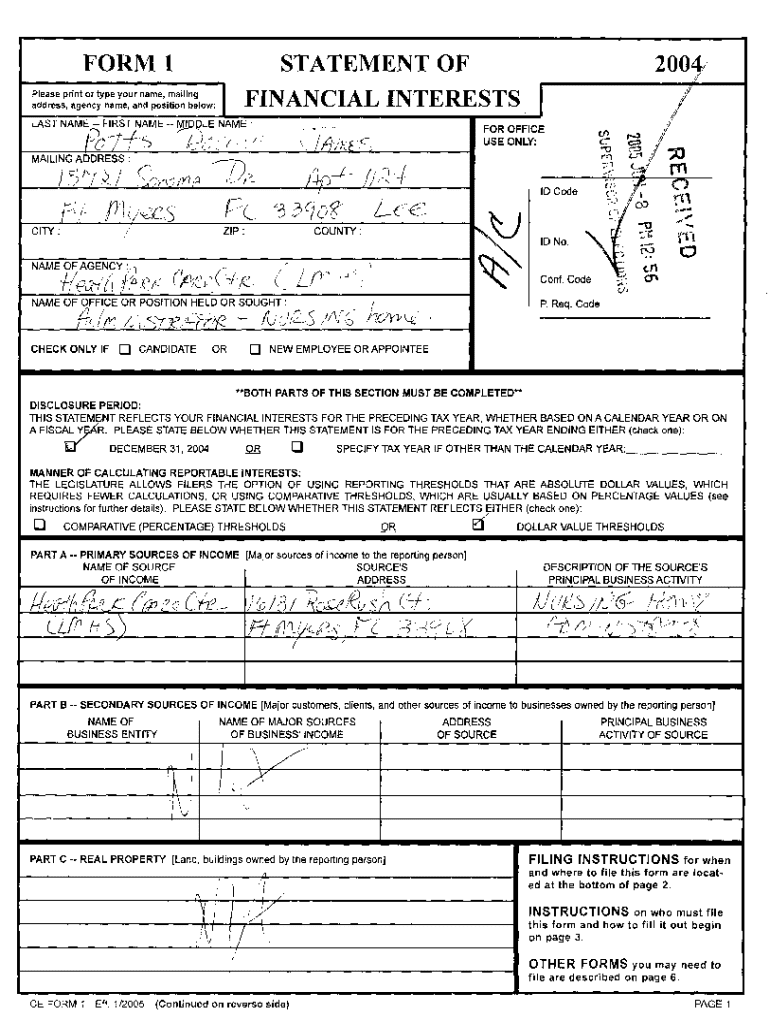 FORM 1 STATEMENT OF 2004
FINANCIAL INTERESTS
Please print or type your name, mailing
address, agency name, and position below:
LAST NAME -- FIRST NAME -- MIDDLE NAME :
Potts James
MAILING ADDRESS :
15721 Sonoma Dr Apt 1124
Ft Myers FL 33908 Lee
CITY : ZIP : COUNTY :
NAME OF AGENCY :
HealthPark Care Ctr. (LMHS)
NAME OF OFFICE OR POSITION HELD OR SOUGHT :
Administrator - Nursing home
CHECK ONLY IF CANDIDATE OR NEW EMPLOYEE OR APPOINTEE
FOR OFFICE
USE ONLY:
A/C
ID Code
ID No.
Conf. Code
P. Req. Code
RECEIVED
PM 12: 56
SUPERVISOR OF ELECTIONS
**BOTH PARTS OF THIS SECTION MUST BE COMPLETED**
DISCLOSURE PERIOD:
THIS STATEMENT REFLECTS YOUR FINANCIAL INTERESTS FOR THE PRECEDING TAX YEAR, WHETHER BASED ON A CALENDAR YEAR OR ON
A FISCAL YEAR. PLEASE STATE BELOW WHETHER THIS STATEMENT IS FOR THE PRECEDING TAX YEAR ENDING EITHER (check one):
DECEMBER 31, 2004 OR SPECIFY TAX YEAR IF OTHER THAN THE CALENDAR YEAR:
MANNER OF CALCULATING REPORTABLE INTERESTS:
THE LEGISLATURE ALLOWS FILERS THE OPTION OF USING REPORTING THRESHOLDS THAT ARE ABSOLUTE DOLLAR VALUES, WHICH
REQUIRES FEWER CALCULATIONS, OR USING COMPARATIVE THRESHOLDS, WHICH ARE USUALLY BASED ON PERCENTAGE VALUES (see
instructions for further details). PLEASE STATE BELOW WHETHER THIS STATEMENT REFLECTS EITHER (check one):
COMPARATIVE (PERCENTAGE) THRESHOLDS OR DOLLAR VALUE THRESHOLDS
PART A -- PRIMARY SOURCES OF INCOME [Major sources of income to the reporting person]
NAME OF SOURCE SOURCE'S DESCRIPTION OF THE SOURCE'S
OF INCOME ADDRESS PRINCIPAL BUSINESS ACTIVITY
HealthPark Care Ctr. 16131 RoseRush Ct. Nursing Home
(LMHS) Ft Myers, FL 33908
PART B -- SECONDARY SOURCES OF INCOME [Major customers, clients, and other sources of income to businesses owned by the reporting person]
NAME OF NAME OF MAJOR SOURCES ADDRESS PRINCIPAL BUSINESS
BUSINESS ENTITY OF BUSINESS' INCOME OF SOURCE ACTIVITY OF SOURCE
N/A
PART C -- REAL PROPERTY [Land, buildings owned by the reporting person]
N/A
FILING INSTRUCTIONS for when
and where to file this form are locat-
ed at the bottom of page 2.
INSTRUCTIONS on who must file
this form and how to fill it out begin
on page 3.
OTHER FORMS you may need to
file are described on page 6.
CE FORM 1 Eff. 1/2005 (Continued on reverse side) PAGE 1